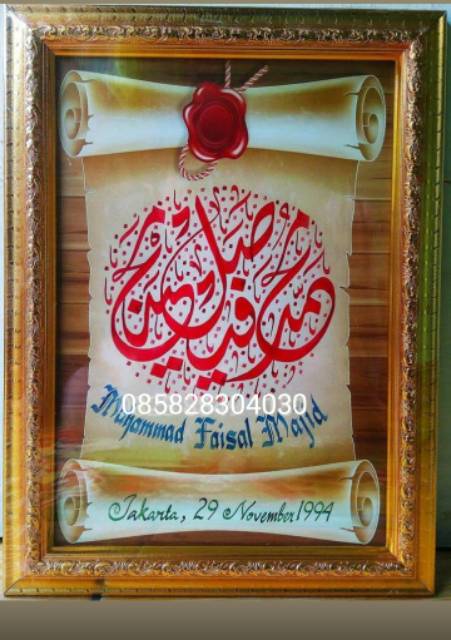 محمد فيصل مجيد
085828304030
Muhammad Faisal Majid
Jakarta, 29 November 1994